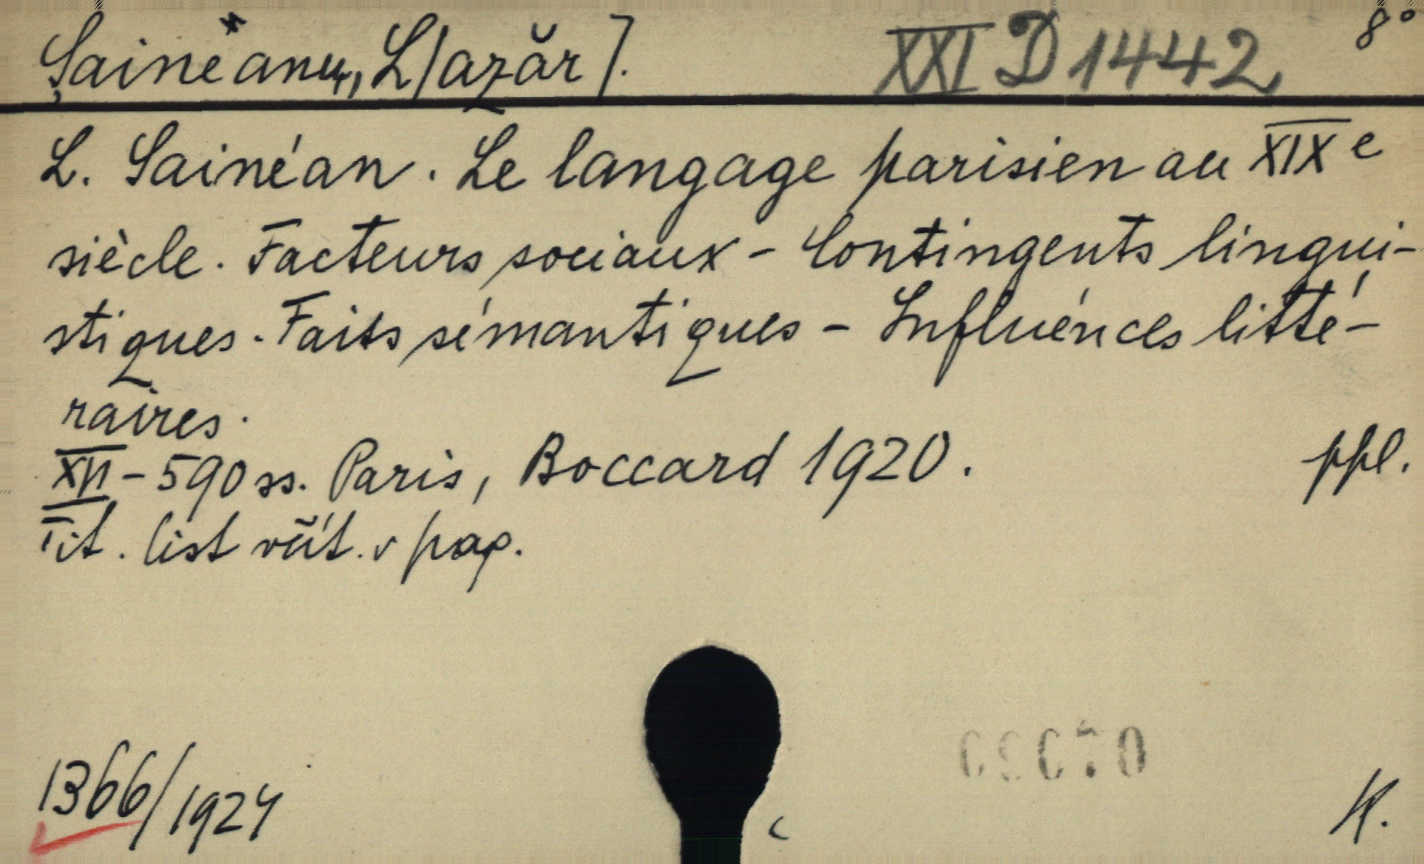 Șainéanu, L[azăr]. XXI D 1442 8°
L. Sainéan. Le langage parisien au XIXe
siècle. Facteurs sociaux - Contingents lingui-
stiques. Faits sémantiques - Influences litté-
raires.
XVI - 590 ss. Paris, Boccard 1920. ppl.
Tit. list vŭt. v pap.
1366/1924